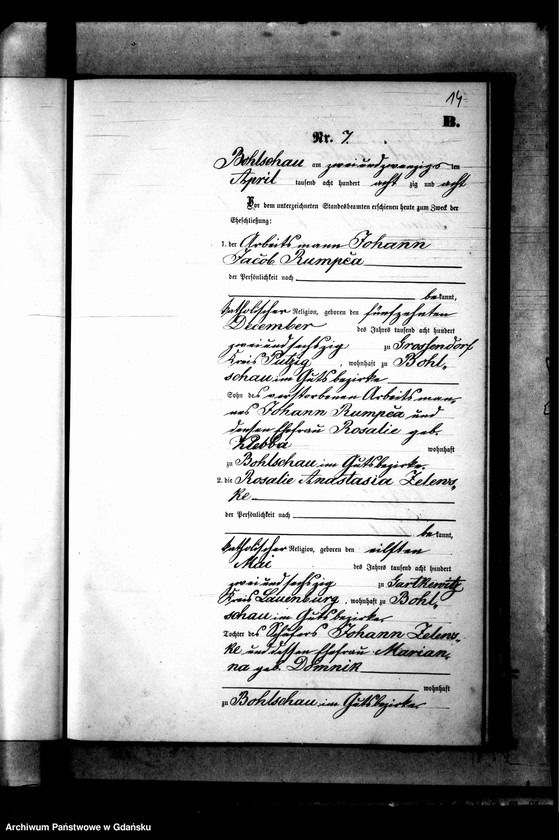 14
B.
Nr. 7.
Bohlschau am zweiundzwanzigsten
April tausend acht hundert acht zig und acht
Vor dem unterzeichneten Standesbeamten erschienen heute zum Zweck der
Eheschließung:
1. der Arbeitsmann Johann
Jacob Rumpča
der Persönlichkeit nach
bekannt,
katholischer Religion, geboren den fünfzehnten
Dezember des Jahres tausend acht hundert
zweiundsechszig zu Grossendorf
Kreis Putzig, wohnhaft zu Bohl-
schau im Gutsbezirke
Sohn des verstorbenen Arbeitsman-
nes Johann Rumpča und
dessen Ehefrau Rosalie geb.
wohnhaft
zu Bohlschau im Gutsbezirke.
2. die Rosalie Anastasia Zelens-
ke
der Persönlichkeit nach
bekannt,
katholischer Religion, geboren den eilften
Mai des Jahres tausend acht hundert
zweiundsechszig zu Gartkewitz
Kreis Lauenburg, wohnhaft zu Bohl-
schau im Gutsbezirke
Tochter des Schäfers Johann Zelens-
ke und dessen Ehefrau Marian-
na geb. Domnik
wohnhaft
zu Bohlschau im Gutsbezirke
Archiwum Państwowe w Gdańsku